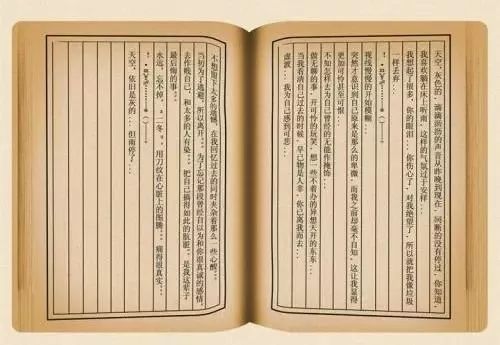 天空,灰色的..滴滴沥沥的声音从昨晚到现在,间断的没有停过..你知道,
我喜欢躺在床上听雨..这样的气氛过于安祥...
我想起了很多,你的眼泪...你伤心了,对我绝望了..所以就把我像垃圾
一样丢弃...
视线慢慢的开始模糊...
突然才意识到自己原来是那么的卑微,而我之前却毫不自知..这让我显得
更加可怜甚至可恨...
不知怎样去为自己曾经的无能作掩饰...
做无聊的事,开可怜的玩笑,想一些不着办的异想天开的东东...
当我看清自己过去的时候,早已物是人非,你已离我而去...
虚渡...我为自己感到可悲...
不想留下太多的遗憾,在我回忆过去的同时夹杂着一些心酸...
当初为了逃避,所以离开...为了忘记那段曾经自以为和你很真诚的感情,
去作贱自己,和太多的人有染...把自己搞得如此的肮脏..是我这辈子
最后悔的事...
永远,忘不掉,"二冬"..用刀纹在心脏上的图腾...痛得很真实...
天空,依旧是灰的...但雨停了...